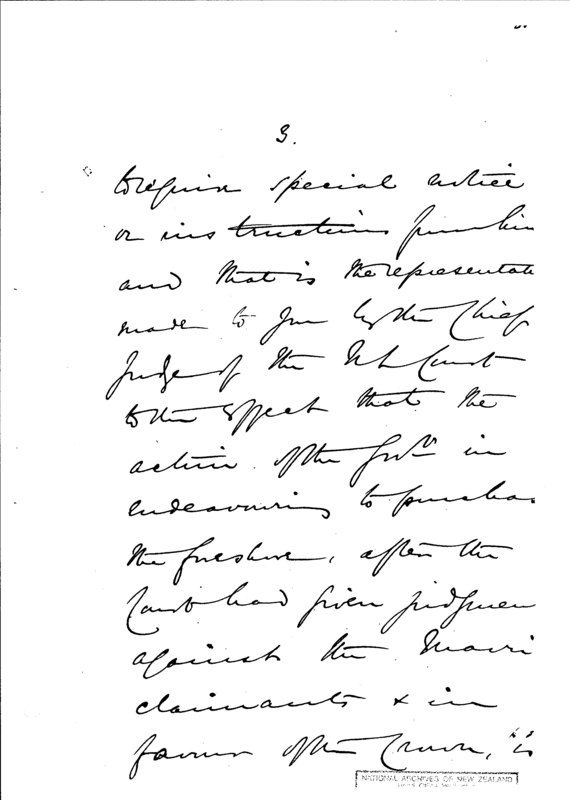 3.
to require special notice
or instructions from him
and that is the representati
made to you by the Chief
Judge of the N L Court
to the effect that the
action of the Govt in
endeavouring to purchas
the foreshore, after the
Court had given judgmen
against the Maori
claimants & in
favour of the Crown, "is
NATIONAL ARCHIVES OF NEW ZEALAND